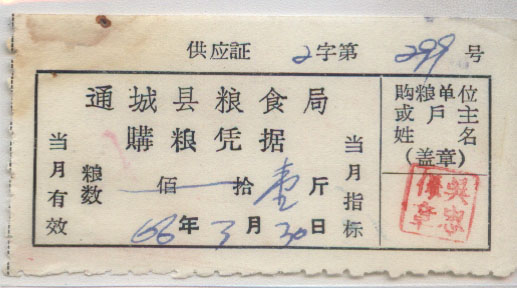 供应証 2字第 299 号
通城县粮食局
購粮凭据
当月有效
粮数
佰 拾 壹斤
66年3月30日
当月指标
购粮单位
或户主
姓名
(盖章)
吴忠
章